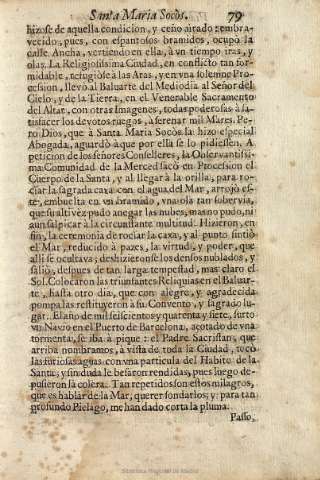 Santa Maria Socòs. 79
hizose de aquella condicion, y ceño airado: embra-
vecido; pues, con espantosos bramidos, ocupò la
calle Ancha, vertiendo en ella, à vn tiempo iras, y
olas. La Religiosissima Ciudad, en conflicto tan for-
midable, refugiòse à las Aras, y en vna solemne Pro-
cession, llevò al Baluarte del Mediodia al Señor del
Cielo, y de la Tierra, en el Venerable Sacramento
del Altar, con otras Imagenes, todas poderosas à sa-
tisfacer los devotos ruegos, à serenar mil Mares. Pe-
ro Dios, que à Santa Maria Socòs la hizo especial
Abogada, aguardò à que por ella se lo pidiessen. A
peticion de los señores Conselleres, la Observantissi-
ma Comunidad de la Merced sacò en Procession el
Cuerpo de la Santa, y al llegar à la orilla, para ro-
ciar la sagrada caxa con el agua del Mar, arrojò es-
te, embuelta en vn bramido, vna ola tan sobervia,
que su altivèz pudo anegar las nubes, mas no pudo, ni
aun salpicar à la circunstante multitud. Hizieron, en
fin, la ceremonia de rociar la caxa, y al punto sintiò
el Mar, reducido à pazes, la virtud, y poder, que
alli se ocultava; deshizieronse los densos nublados, y
saliò, despues de tan larga tempestad, mas claro el
Sol. Colocaron las triunfantes Reliquias en el Baluar-
te, hasta otro dia, que con alegre, y agradecida
pompa las restituyeron à su Convento, y sagrado lu-
gar. El año de mil seiscientos y quarenta y siete, surto
vn Navio en el Puerto de Barcelona, açotado de vna
tormenta, se iba à pique: el Padre Sacristan, que
arriba nombramos, à vista de toda la Ciudad, tocò
las furiosas aguas con vna particula del Habito de la
Santa; y sin duda le besaron rendidas, pues luego de-
pusieron la colera. Tan repetidos son estos milagros,
que es hablar de la Mar, querer sondarlos; y para tan
profundo Pielago, me han dado corta la pluma.
Passo,
Biblioteca Regional de Madrid